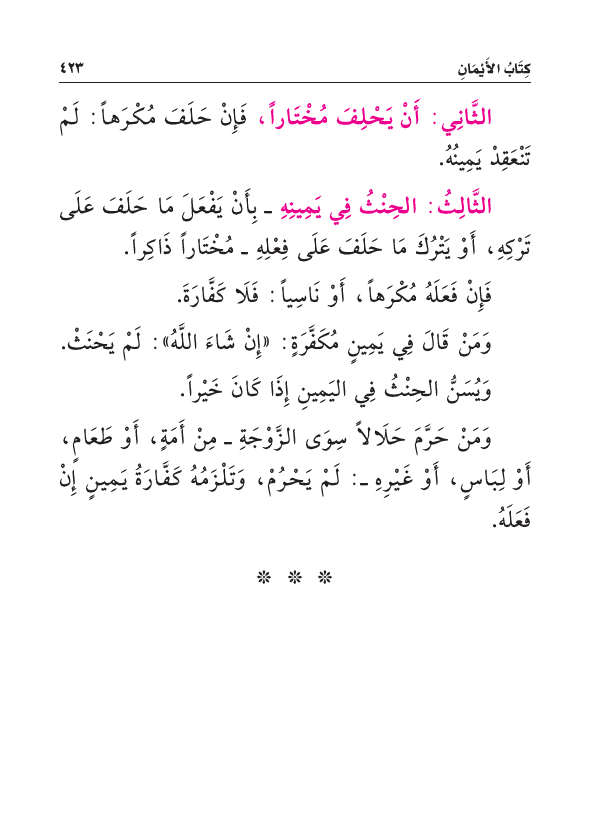 كِتَابُ الأَيْمَانِ ٤٢٣
الثَّانِي: أَنْ يَحْلِفَ مُخْتَاراً، فَإِنْ حَلَفَ مُكْرَهاً: لَمْ
تَنْعَقِدْ يَمِينُهُ.
الثَّالِثُ: الحِنْثُ فِي يَمِينِهِ ـ بِأَنْ يَفْعَلَ مَا حَلَفَ عَلَى
تَرْكِهِ، أَوْ يَتْرُكَ مَا حَلَفَ عَلَى فِعْلِهِ ـ مُخْتَاراً ذَاكِراً.
فَإِنْ فَعَلَهُ مُكْرَهاً، أَوْ نَاسِياً: فَلَا كَفَّارَةَ.
وَمَنْ قَالَ فِي يَمِينٍ مُكَفَّرَةٍ: «إِنْ شَاءَ اللَّهُ»: لَمْ يَحْنَثْ.
وَيُسَنُّ الحِنْثُ فِي اليَمِينِ إِذَا كَانَ خَيْراً.
وَمَنْ حَرَّمَ حَلَالاً سِوَى الزَّوْجَةِ ـ مِنْ أَمَةٍ، أَوْ طَعَامٍ،
أَوْ لِبَاسٍ، أَوْ غَيْرِهِ ـ: لَمْ يَحْرُمْ، وَتَلْزَمُهُ كَفَّارَةُ يَمِينٍ إِنْ
فَعَلَهُ.